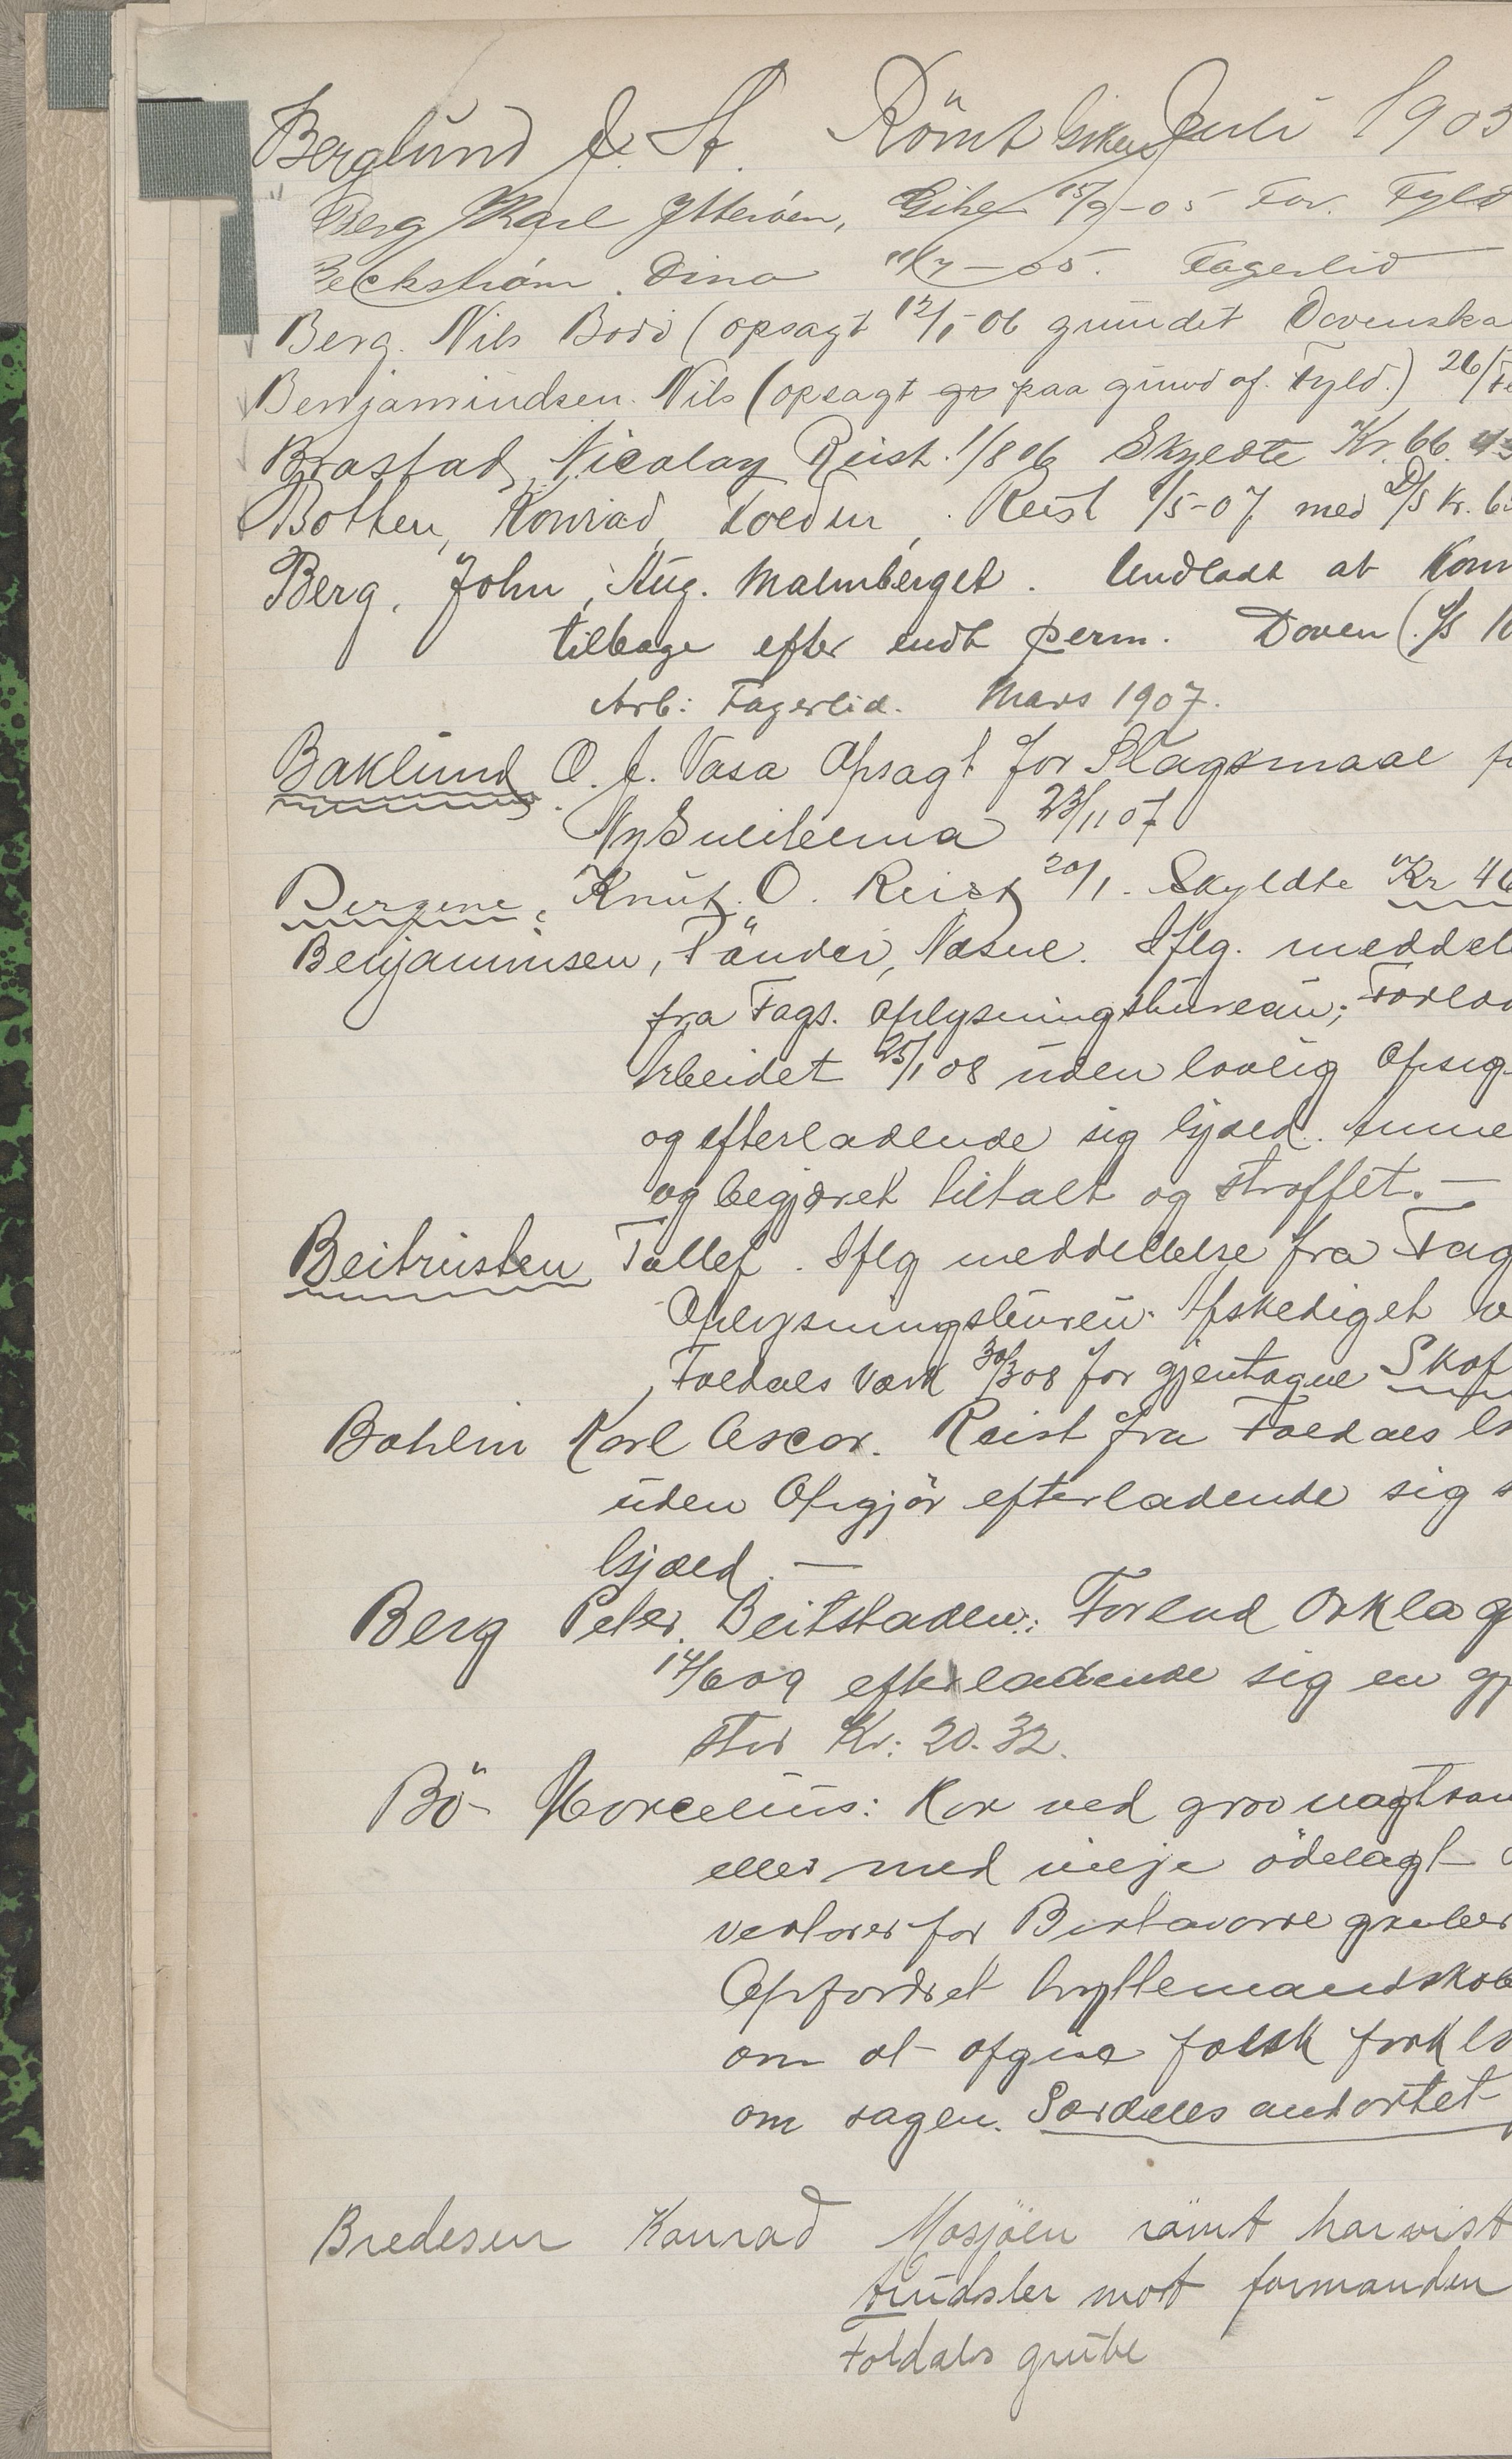 Berglund J. A. Römt Giken Juli 1903
" Berg Karl Ytteröen, Giken 15/9-05 For. Fyld
Beckström. Dina 11/7-05. Fagerlid
Berg. Nils Bodö (opsagt 12/1-06 grundet Dovenska
Benjamindsen. Nils (opsagt gr paa grund af. Fyld.) 26/
Brastad, Nicolay Reist. 1/8 06 Skyldte Kr. 66.
Botten, Konrad, Reist 1/5-07 med D/S Kr.
Berg, John, Aug. Malmberget. Undladt at Kom
tilbage efter endt perm. Doven (.
Arb: Fagerlid. Mars 1907.
Baklund O. J. Vasa Opsagt for Slagsmaal
Ny Sulitelma 23/11 07
Bergene, Knut. O. Reist 20/1. Skyldte Kr 46
Benjaminsen, Pánder, Næsne. Iflg. meddel
fra Fags. Oplysningsbureau; Forlod
Arbeidet 25/1 08 uden lovlig Opsig
og efterladende sig gjæld. Anme
og begjæret tiltalt og straffet. —
Beitrusten Tollef. Iflg meddelelse fra Fag
Oplysningsbureu. Afskediget v
Foldals Værk 30/3 08 for gjentagne Skof
Bohlin Karl Oscar. Reist fra Foldals
uden Opgjör efterladende sig s
gjæld. —
Berg Peter. Beitstaden: Forlod Orkla g
14/6 09 efterladende sig en gj
stor Kr: 20.32.
Bö- Marcelius: Har ved grov uagtsom
eller med vilje ödelagt
for Birtavarre gruber
Opfordret hyttemandskab
om at afgive falsk forkla
om sagen. Særdeles anbortet
Bredesen Konrad Mosjöen römt har vist
trudsler mot formanden
Foldals grube